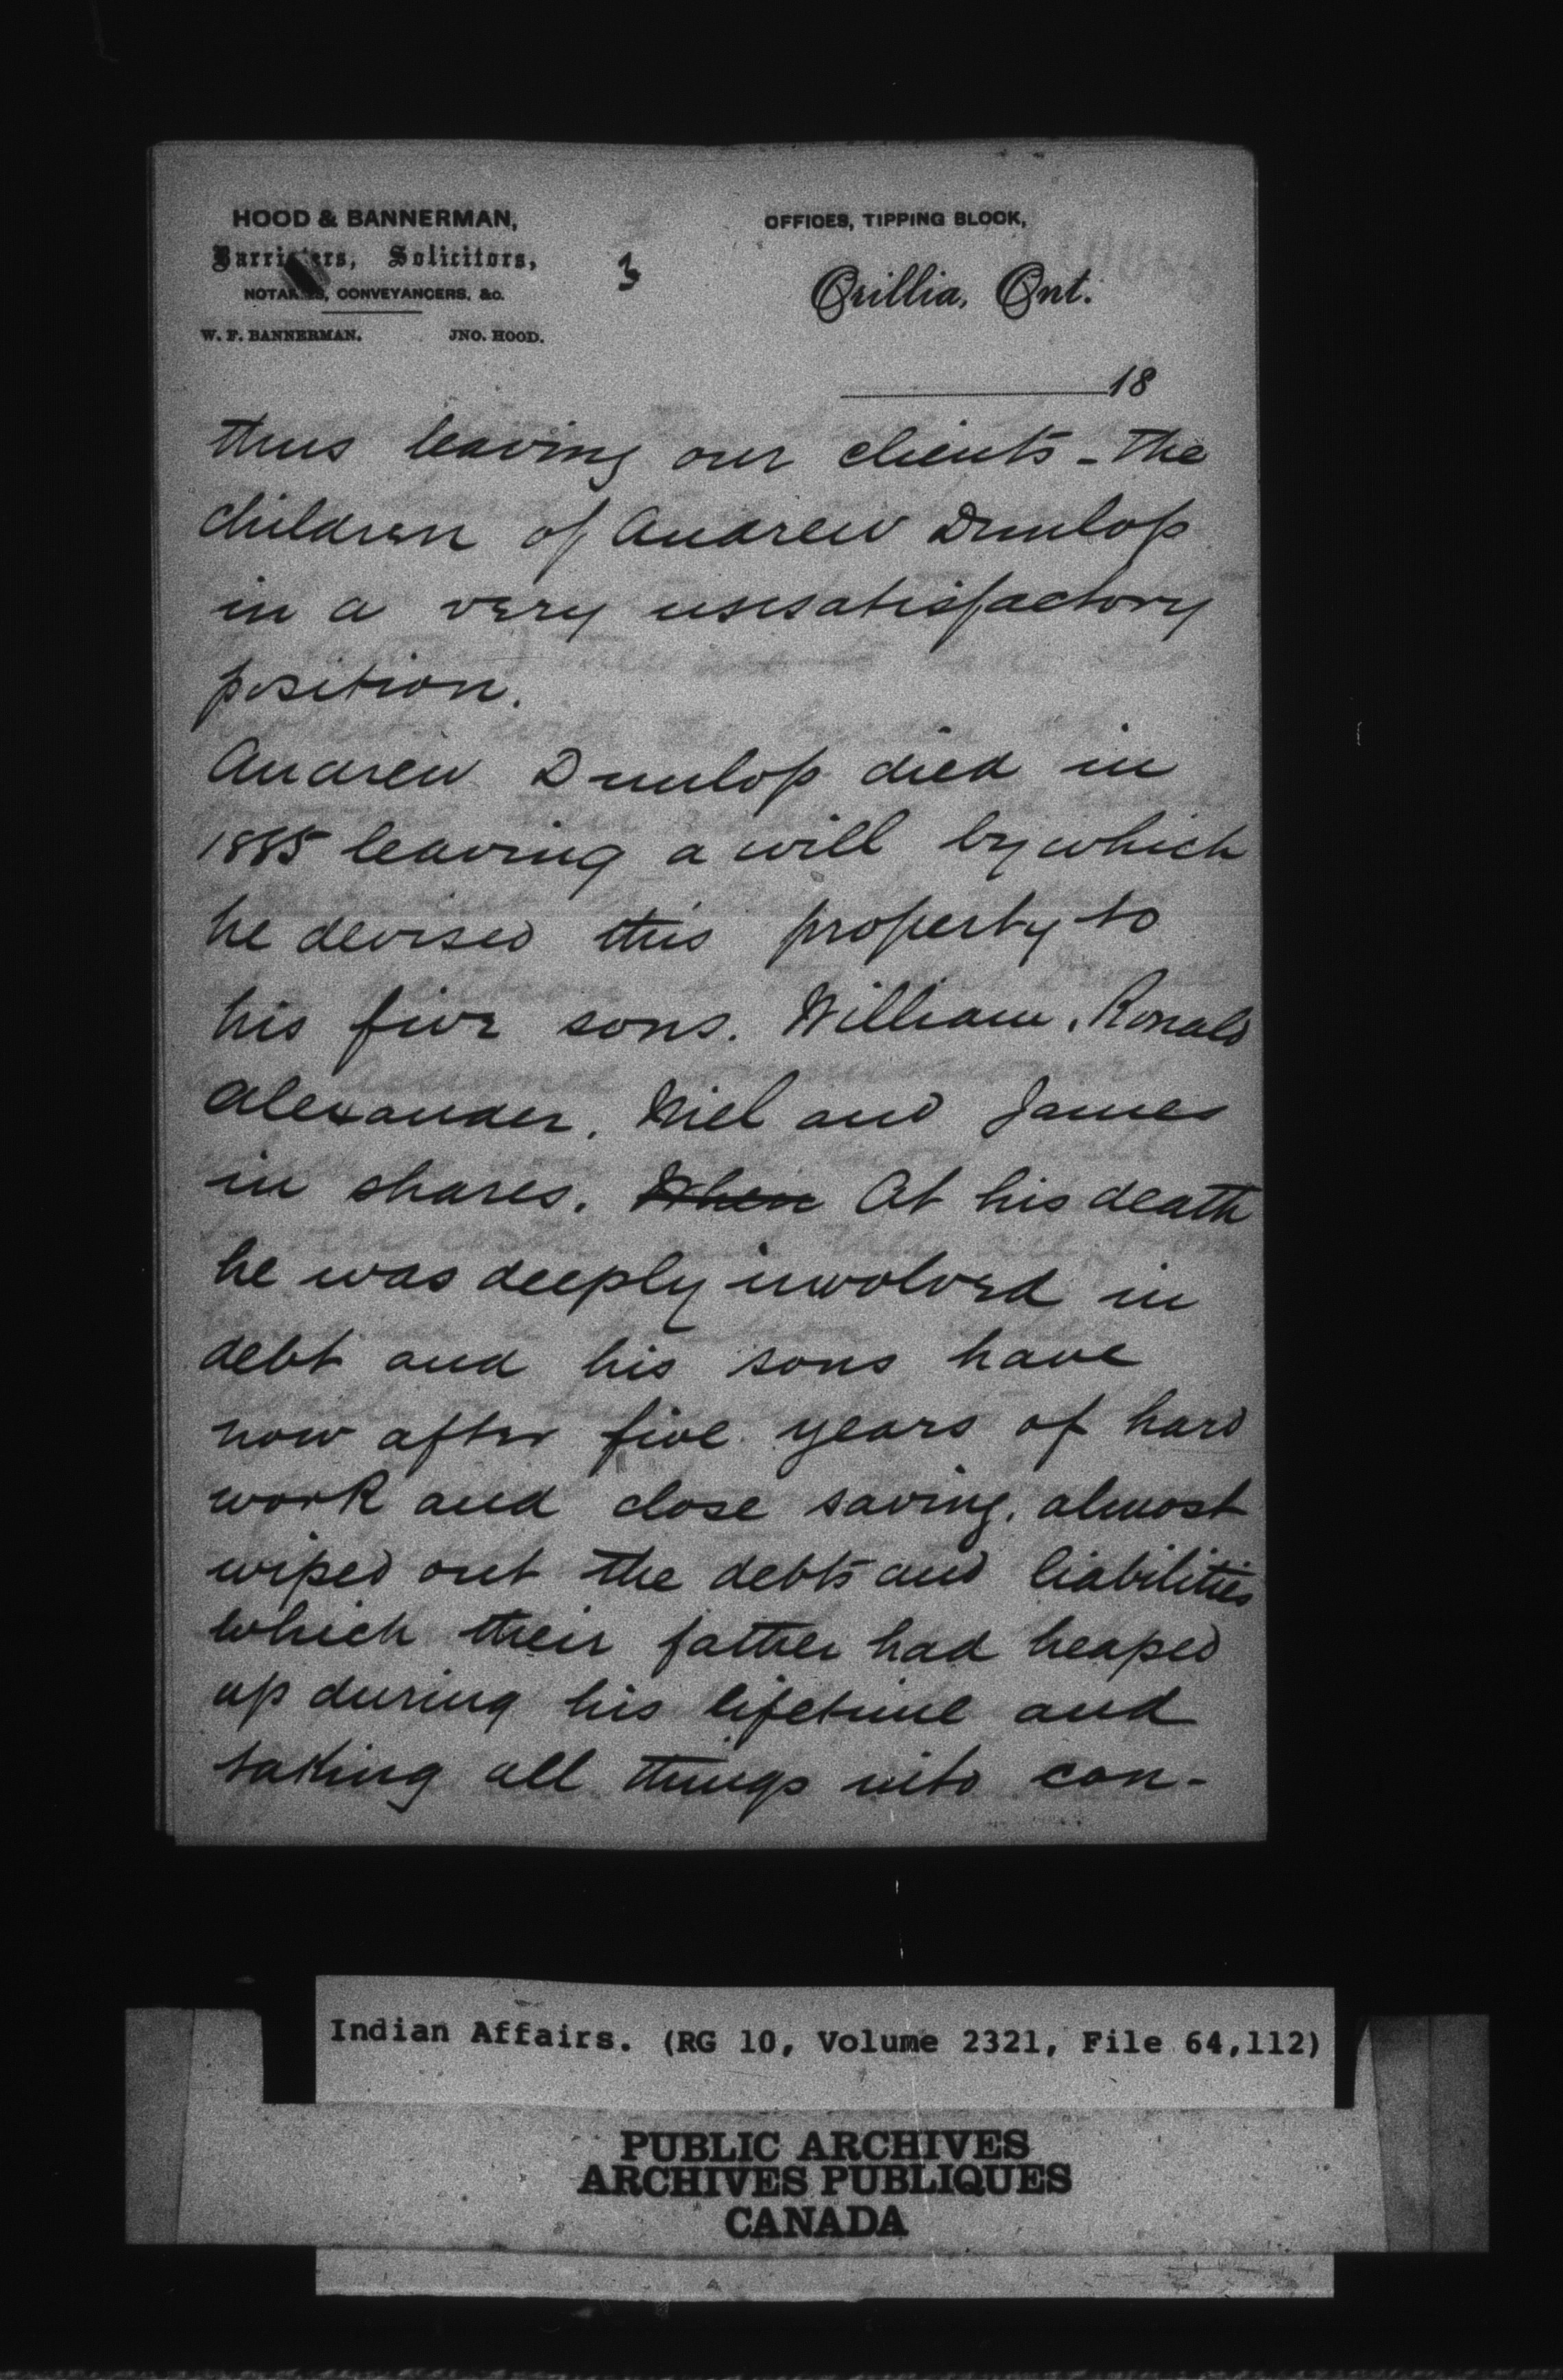 HOOD & BANNERMAN,
Barristers, Solicitors,
NOTARIES, CONVEYANCERS, &c.
W. F. BANNERMAN. JNO. HOOD.
3
OFFICES, TIPPING BLOCK,
Orillia, Ont.
18
thus leaving our clients - the
children of Andrew Dunlop
in a very unsatisfactory
position.
Andrew Dunlop died in
1885 leaving a will by which
he devised this property to
his five sons. William, Ronald
Alexander, Niel and James
in shares. When At his death
he was deeply involved in
debt and his sons have
now after five years of hard
work and close saving, almost
wiped out the debts and liabilities
which their father had heaped
up during his lifetime and
taking all things into con-
Indian Affairs. (RG 10, Volume 2321, File 64,112)
PUBLIC ARCHIVES
ARCHIVES PUBLIQUES
CANADA